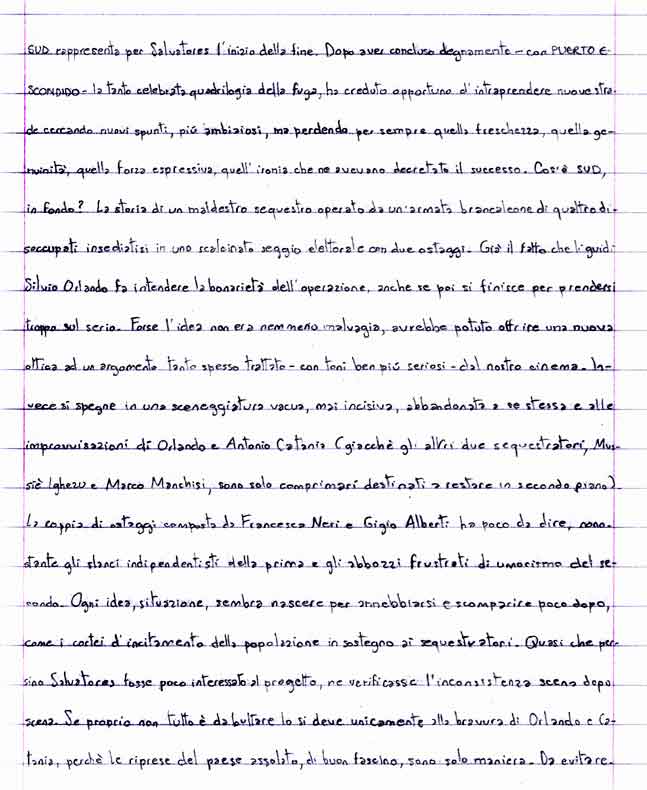 SUD rappresenta per Salvatores l'inizio della fine. Dopo aver concluso degnamente - con PUERTO E-
SCONDIDO - la tanto celebrata quadrilogia della fuga, ha creduto opportuno d'intraprendere nuove stra-
de cercando nuovi spunti, più ambiziosi, ma perdendo per sempre quella freschezza, quella ge-
nuinità, quella forza espressiva, quell'ironia che ne avevano decretato il successo. Cos'è SUD,
in fondo? La storia di un maldestro sequestro operato da un'armata brancaleone di quattro di-
soccupati insediatisi in uno scalcinato seggio elettorale con due ostaggi. Già il fatto che li guidi
Silvio Orlando fa intendere la bonarietà dell'operazione, anche se poi si finisce per prendersi
troppo sul serio. Forse l'idea non era nemmeno malvagia, avrebbe potuto offrire una nuova
ottica ad un argomento tanto spesso trattato - con toni ben più seriosi - dal nostro cinema. In-
vece si spegne in una sceneggiatura vacua, mai incisiva, abbandonata a se stessa e alle
improvvisazioni di Orlando e Antonio Catania (giacchè gli altri due sequestratori, Mus-
siè Ighezu e Marco Manchisi, sono solo comprimari destinati a restare in secondo piano).
La coppia di ostaggi composta da Francesca Neri e Gigio Alberti ha poco da dire, nono-
stante gli slanci indipendentisti della prima e gli abbozzi frustrati di umorismo del se-
condo. Ogni idea, situazione, sembra nascere per annebbiarsi e scomparire poco dopo,
come i cortei d'incitamento della popolazione in sostegno ai sequestratori. Quasi che per-
sino Salvatores fosse poco interessato al progetto, ne verificasse l'inconsistenza scena dopo
scena. Se proprio non tutto è da buttare lo si deve unicamente alla bravura di Orlando e Ca-
tania, perchè le riprese del paese assolato, di buon fascino, sono solo maniera. Da evitare.